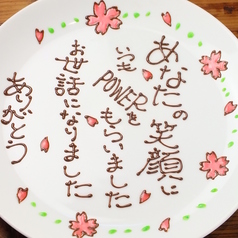 あなたの笑顔に
いつもPOWERを
もらいました
お世話になりました
ありがとう